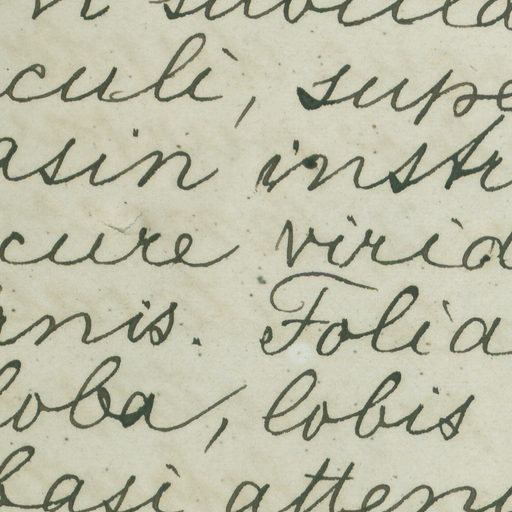 culi, supe
asin instr
cure virid
anis. Folia
loba, lobis
basi atten